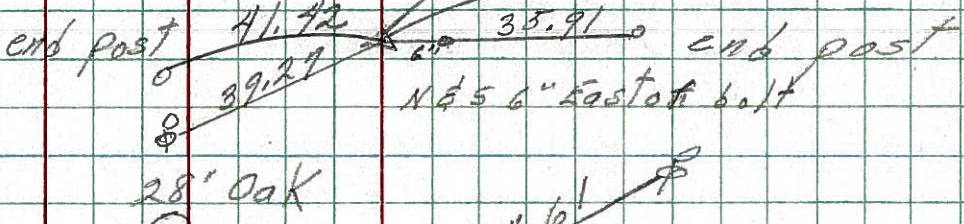 end post 41.42 35.91 end post
6"
39.27
N & S 6" East of bolt
28" Oak